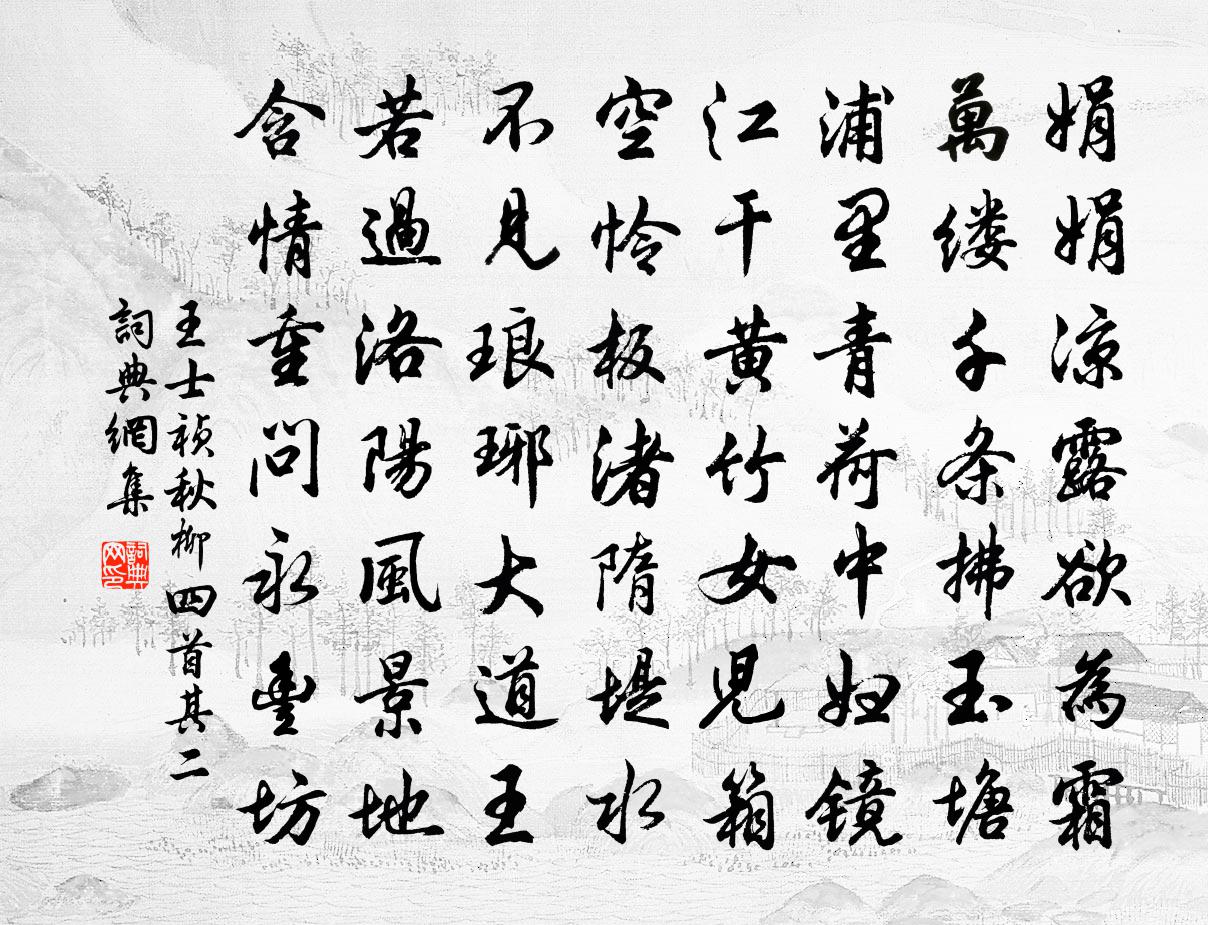 娟娟凉露欲為霜
萬缕千条拂玉塘
浦里青荷中妇镜
江干黄竹女児箱
空怜板渚隋堤水
不見琅琊大道王
若過洛陽風景地
含情重問永豊坊
王士禎秋柳四首其二
詞典網集
詞典网印